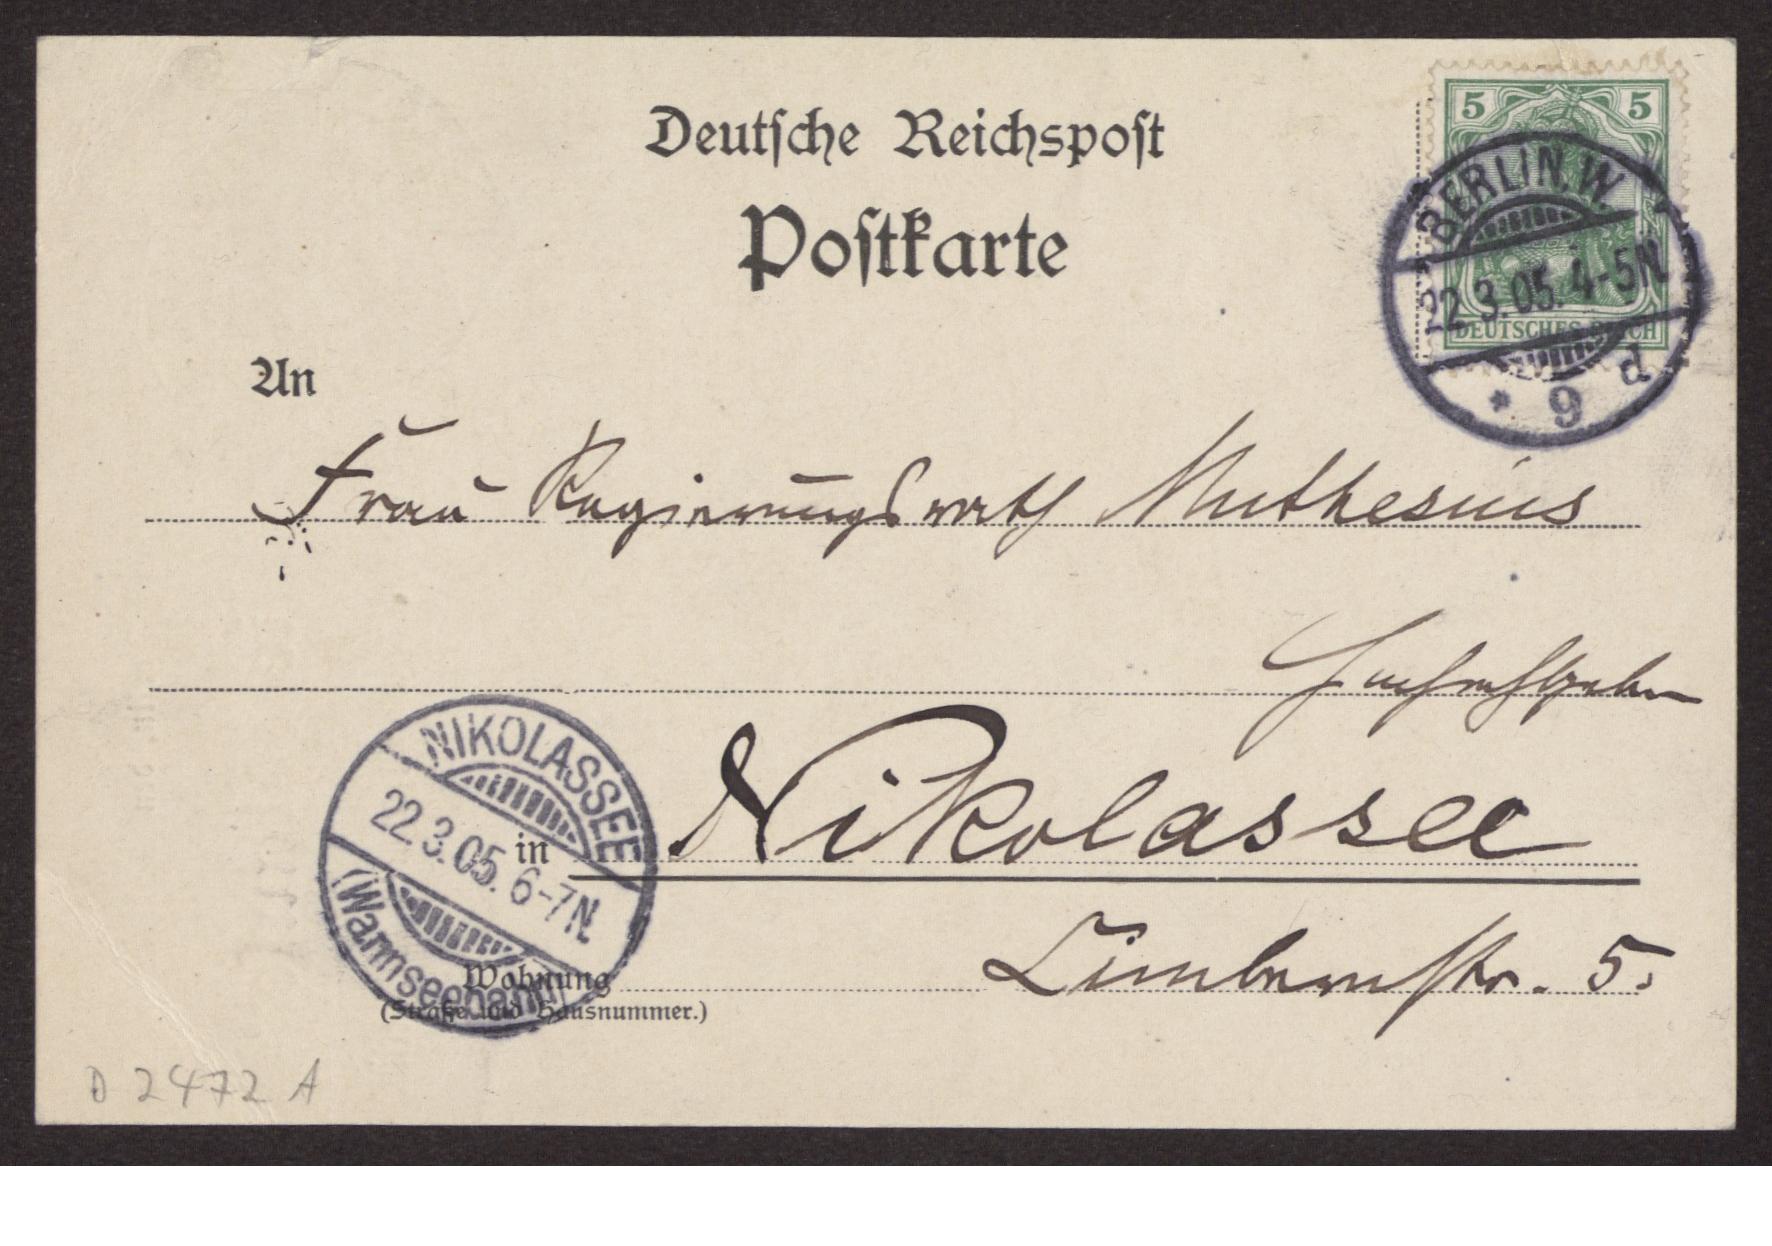 Deutsche Reichspost
Postkarte
5 5
DEUTSCHES REICH
BERLIN. W.
22.3.05. 4-5N.
* 9 d
An
Frau Regierungsrath Muthesius
Hochwohlgeboren
NIKOLASSEE
22.3.05. 6-7N.
(Wannseebahn)
in Nikolassee
Wohnung
(Straße und Hausnummer.)
5.
D 2472 A